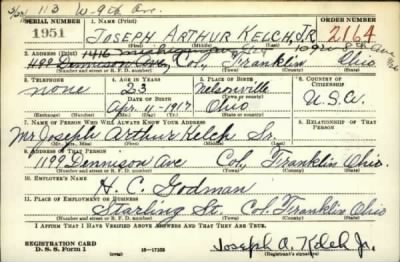 113 W-9th Ave.
SERIAL NUMBER 1. NAME (Print) ORDER NUMBER
1951 JOSEPH ARTHUR KELCH, JR. 2164
(First) (Middle) (Last)
1416 Michigan 109 8th Ave
2. ADDRESS (Print)
1199 Dennison Ave Col. Franklin Ohio
(Number and street or R. F. D. number) (Town) (County) (State)
3. TELEPHONE 4. AGE IN YEARS 5. PLACE OF BIRTH 6. COUNTRY OF CITIZENSHIP
none 23 Nelsonville U.S.A.
DATE OF BIRTH
Apr. 10-1917 Ohio
(Exchange) (Number) (Mo.) (Day) (Yr.) (State or country)
7. NAME OF PERSON WHO WILL ALWAYS KNOW YOUR ADDRESS 8. RELATIONSHIP OF THAT PERSON
Mr Joseph Arthur Kelch Sr.
(Mr., Mrs., Miss) (First) (Middle) (Last)
9. ADDRESS OF THAT PERSON
1199 Dennison Ave Col, Franklin Ohio.
(Number and street or R. F. D. number) (Town) (County) (State)
10. EMPLOYER'S NAME
H. C. Godman
11. PLACE OF EMPLOYMENT OR BUSINESS
Starling St. Col. Franklin Ohio
(Number and street or R. F. D. number) (Town) (County) (State)
I AFFIRM THAT I HAVE VERIFIED ABOVE ANSWERS AND THAT THEY ARE TRUE.
REGISTRATION CARD
D. S. S. Form 1 16-17105 Joseph A. Kelch Jr.
(Registrant's signature)